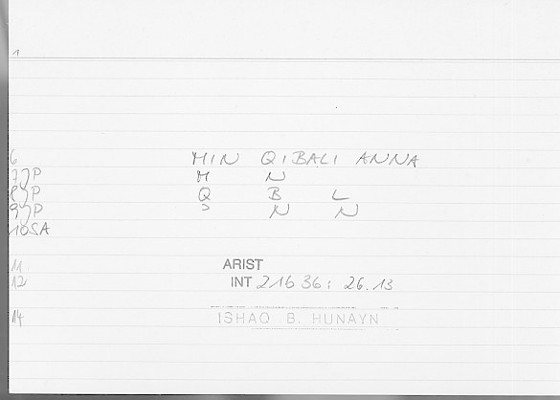 1
6 MIN QIBALI ANNA
7JP M N
8JP Q B L
9JP > N N
10SA
11 ARIST
12 INT 21636: 26.13
14 ISHAQ B. HUNAYN